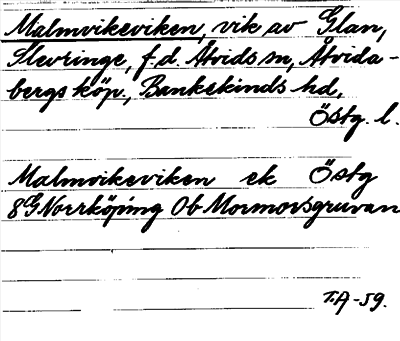 Malmvikeviken, vik av Glan,
Slevringe, f.d. Åtvids sn, Åtvida-
bergs köp., Bankekinds hd,
Östg. l.
Malmvikeviken ek Östg
8G Norrköping Ob Mormorsgruvan
T.A-59.